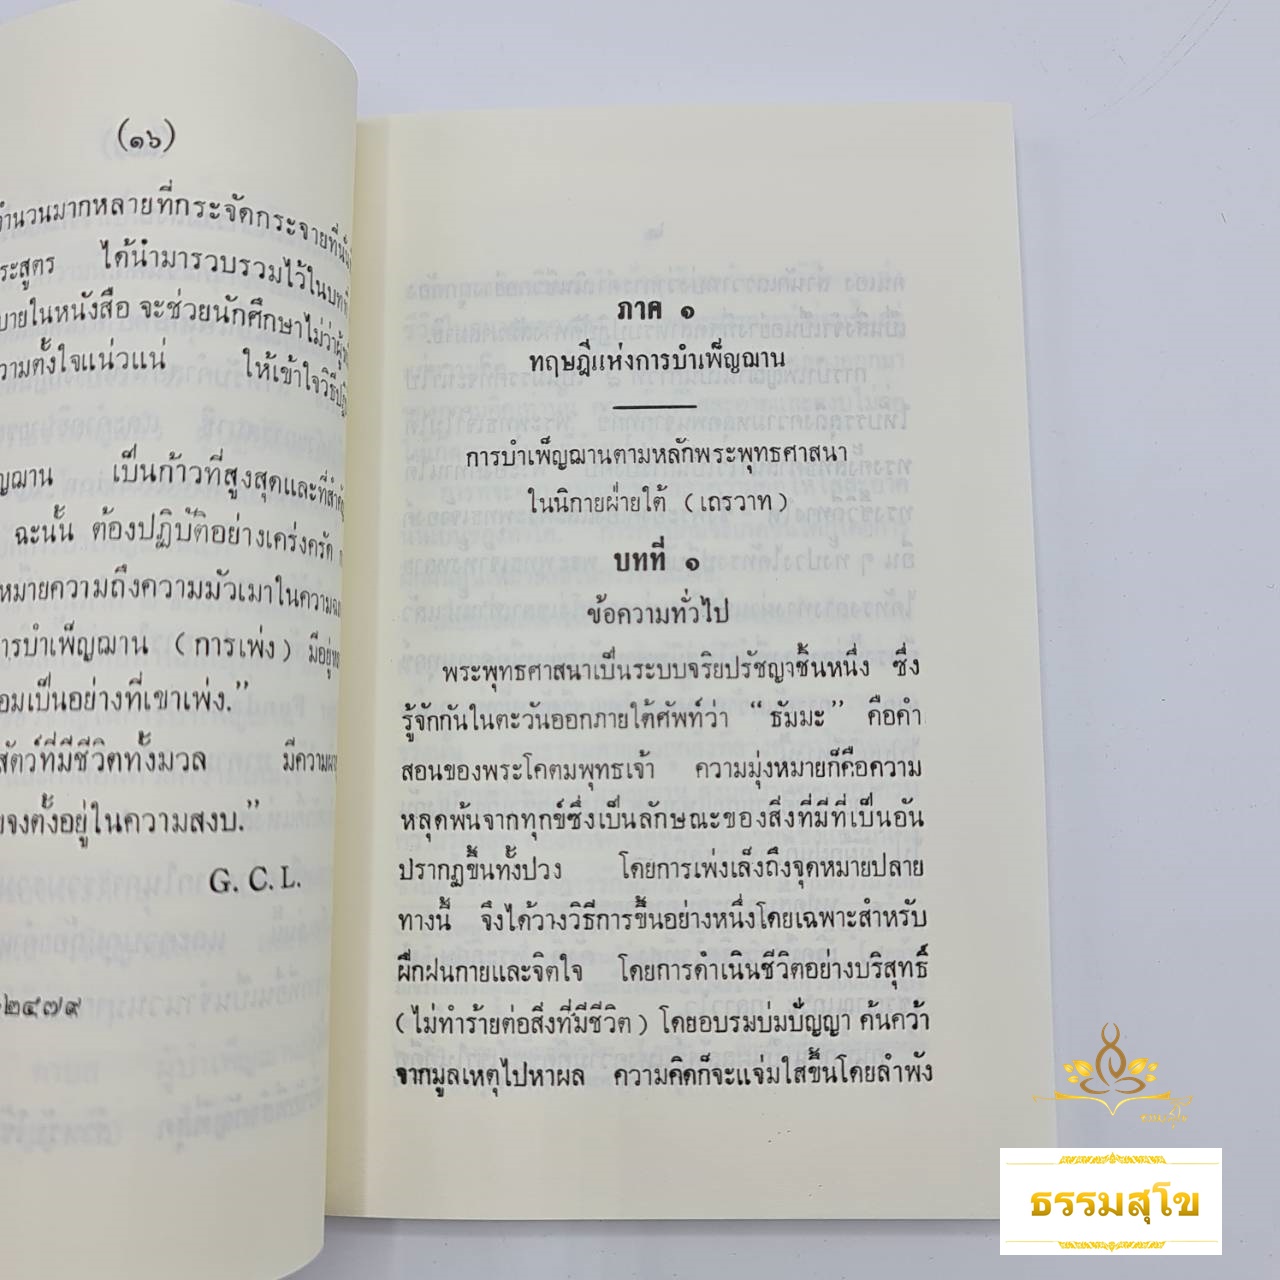 (๑๖)
จำนวนมากหลายที่กระจัดกระจายที่
ระสูตร ได้นำมารวบรวมไว้ในบท
บายในหนังสือ จะช่วยนักศึกษาไม่ว่า
ความตั้งใจแน่วแน่ ให้เข้าใจ
ญฌาน เป็นก้าวที่สูงสุดและที่สำคัญ
ฉะนั้น ต้องปฏิบัติอย่างเคร่งครัด
หมายความถึงความมัวเมาในความ
ารบำเพ็ญฌาน (การเพ่ง) มีอยู่
อมเป็นอย่างที่เขาเพ่ง.”
สัตว์ที่มีชีวิตทั้งมวล
จงตั้งอยู่ในความสงบ.”
G. C. L.
๒๔๗๙
ภาค ๑
ทฤษฎีแห่งการบำเพ็ญฌาน
การบำเพ็ญฌานตามหลักพระพุทธศาสนา
ในนิกายฝ่ายใต้ (เถรวาท)
บทที่ ๑
ข้อความทั่วไป
พระพุทธศาสนาเป็นระบบจริยปรัชญาชิ้นหนึ่ง ซึ่ง
รู้จักกันในตะวันออกภายใต้ศัพท์ว่า “ธัมมะ” คือคำ
สอนของพระโคตมพุทธเจ้า ความมุ่งหมายก็คือความ
หลุดพ้นจากทุกข์ซึ่งเป็นลักษณะของสิ่งที่มีที่เป็นอัน
ปรากฏขึ้นทั้งปวง โดยการเพ่งเล็งถึงจุดหมายปลาย
ทางนี้ จึงได้วางวิธีการขึ้นอย่างหนึ่งโดยเฉพาะสำหรับ
ฝึกฝนกายและจิตใจ โดยการดำเนินชีวิตอย่างบริสุทธิ์
(ไม่ทำร้ายต่อสิ่งที่มีชีวิต) โดยอบรมบ่มปัญญา ค้นคว้า
จากมูลเหตุไปหาผล ความคิดก็จะแจ่มใสขึ้นโดยลำพัง
ธรรมสุโข